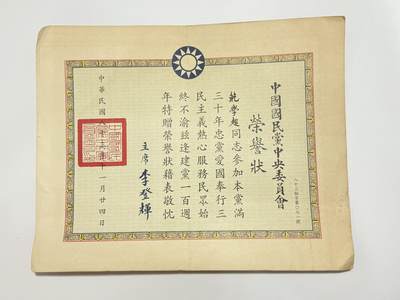 中國國民黨中央委員會
榮譽狀
同志參加本黨滿
三十年忠黨愛國奉行三
民主義熱心服務民眾始
終不渝茲逢建黨一百週
年特贈榮譽狀藉表敬忱
主席 李登輝
中華民國八十三年十一月廿四日